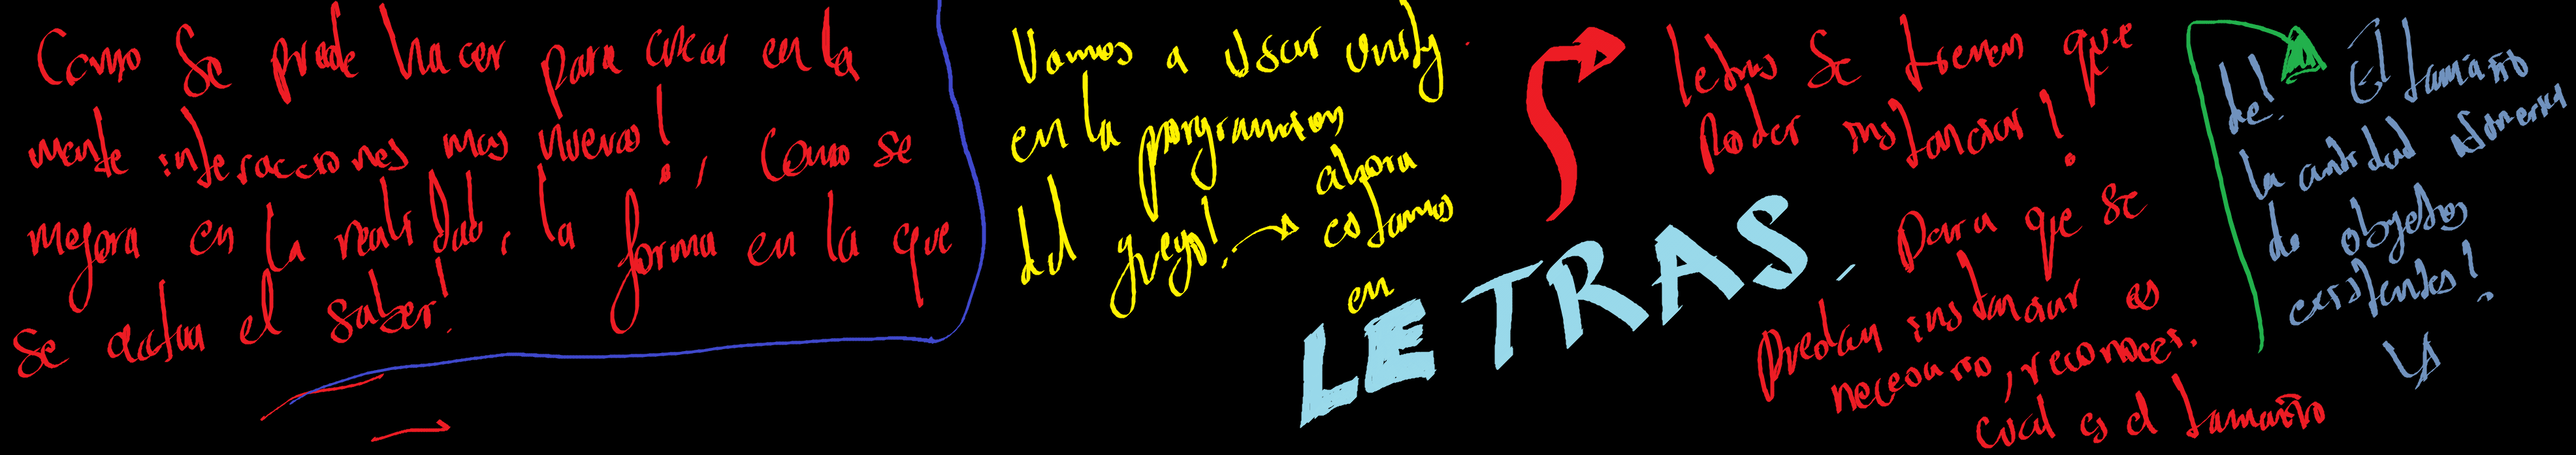 Como Se puede hacer para crear en la
mente interacciones mas nuevas!, Como se
mejora en la realidad, la forma en la que
se actua el saber!
Vamos a Usar unity.
en la porgramacion
del juego!
ahora
estamos
en
LETRAS
letras Se tienen que
Poder instanciar!
Para que se
puedan instanciar es
necesario, reconocer.
cual es el tamaño
de!
El tamaño
la cantidad
de objetos
existentes!